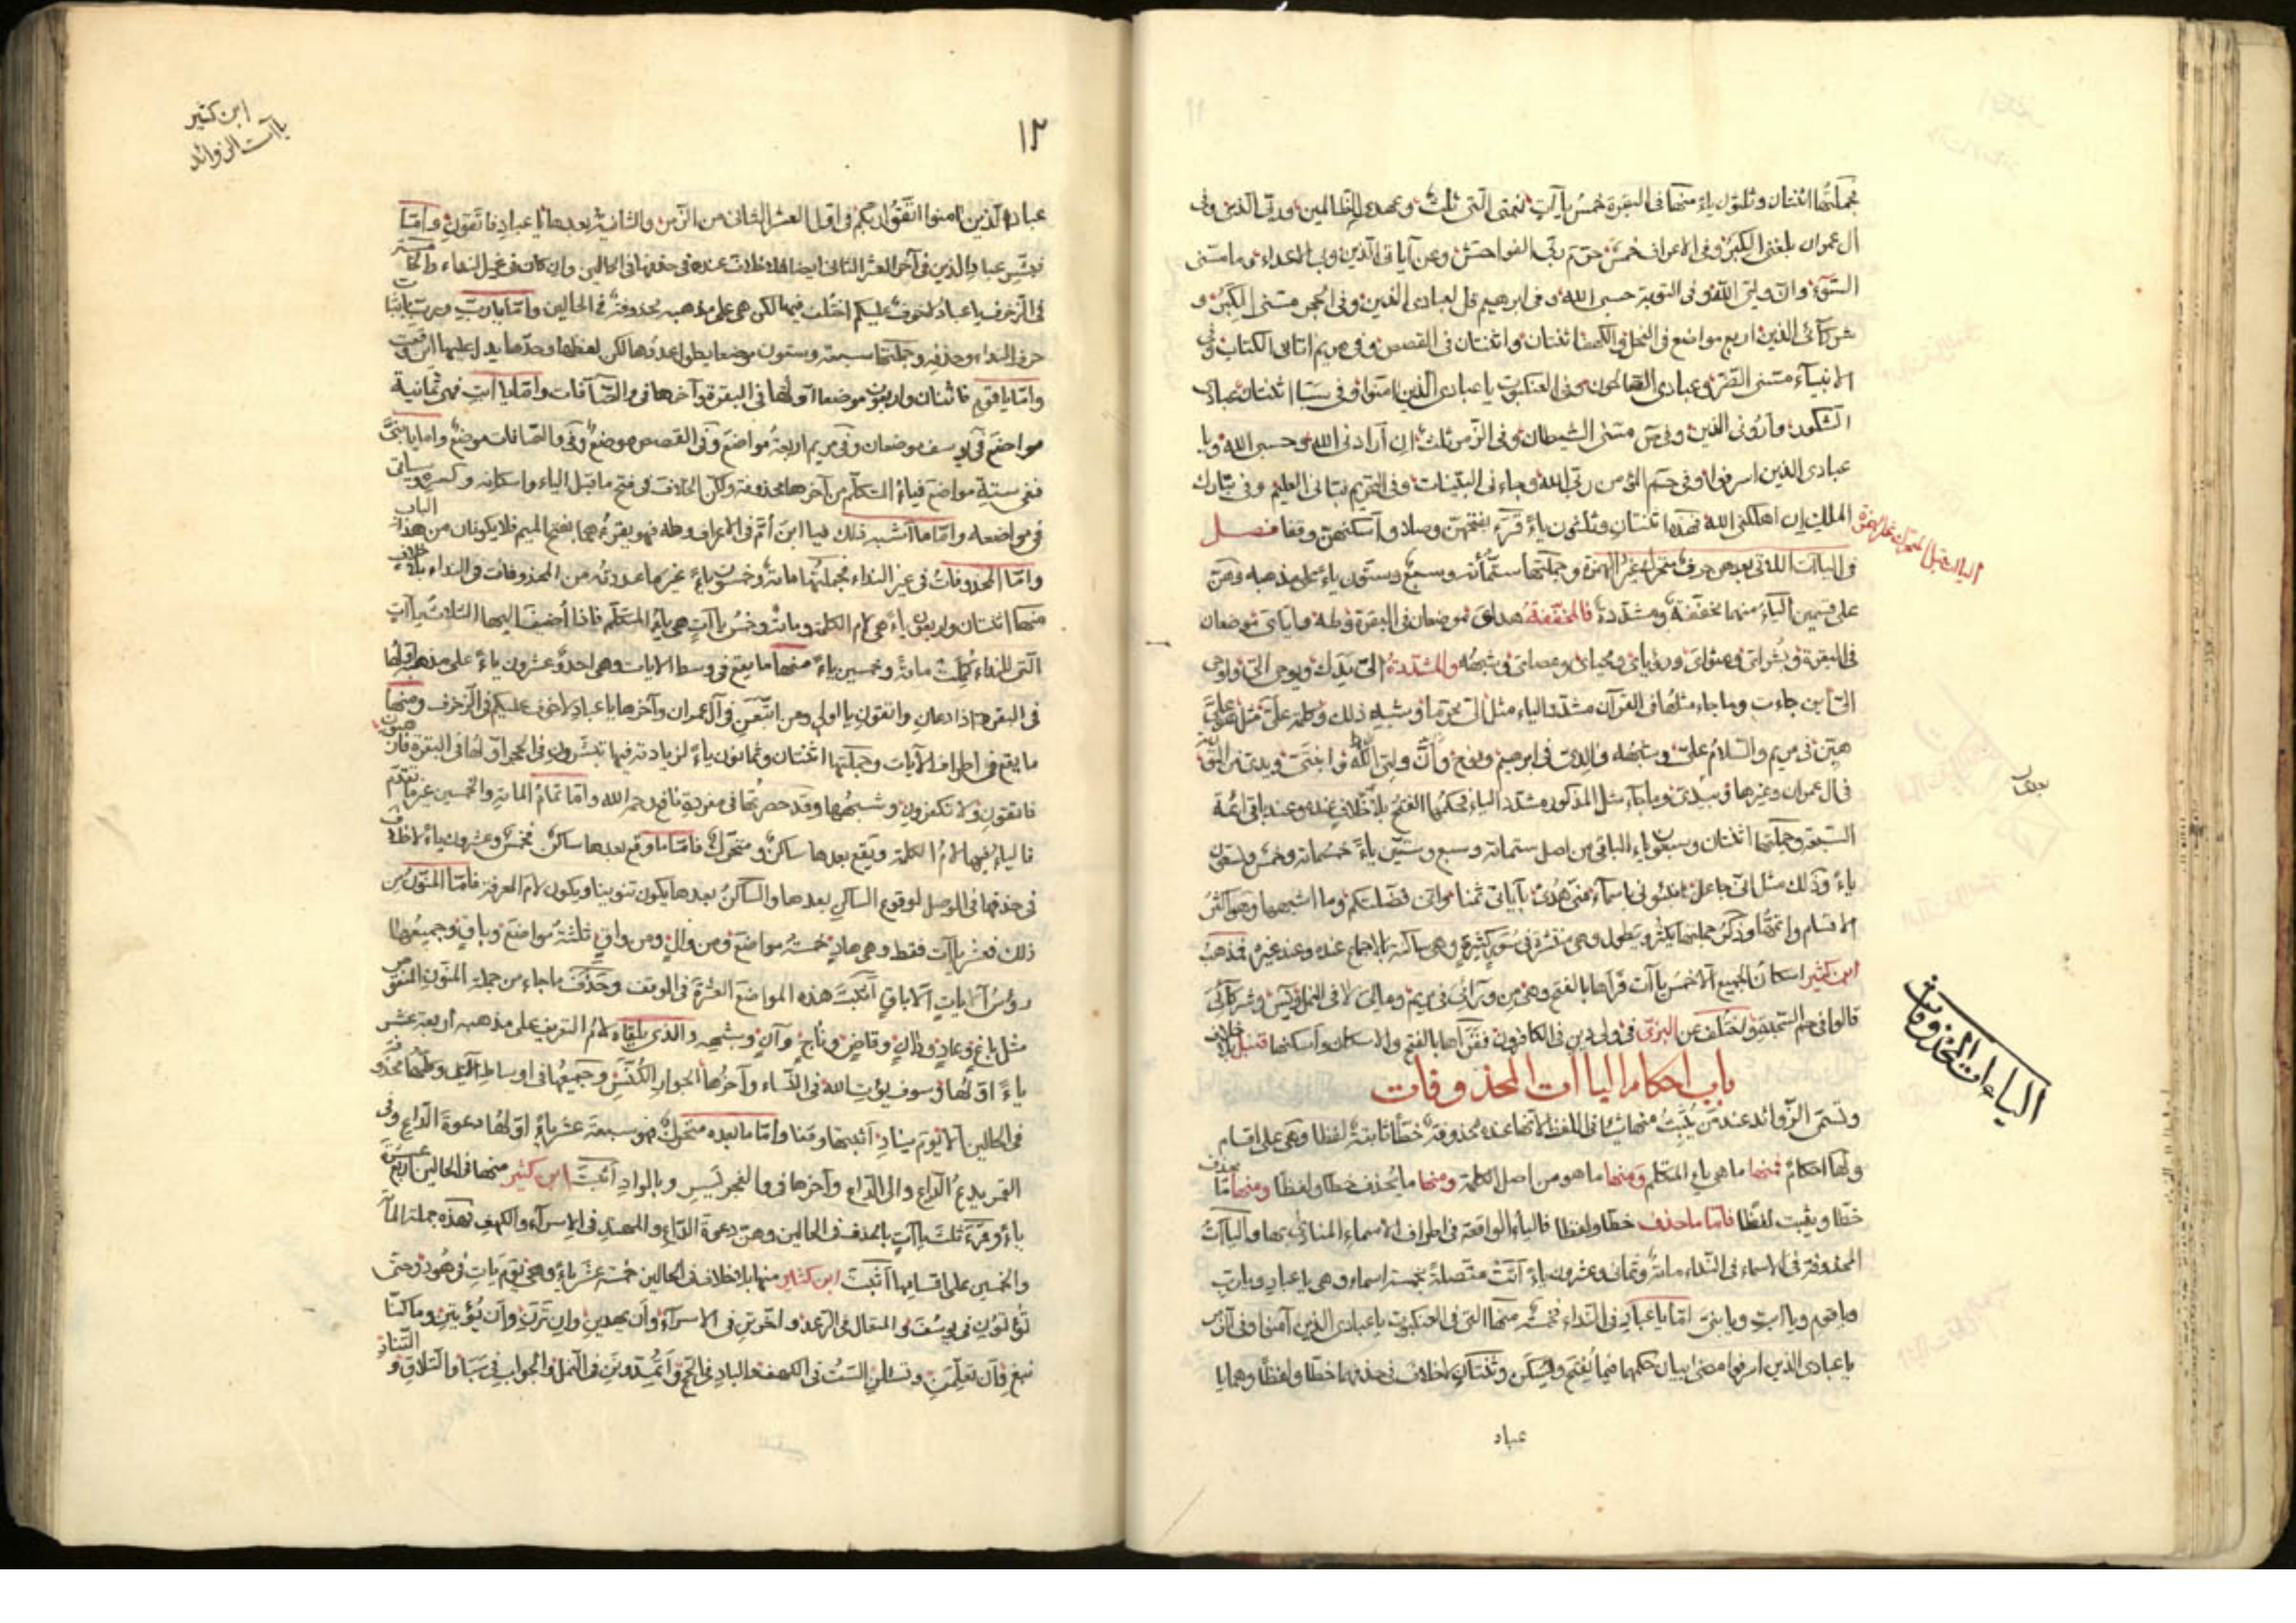 جملتها اثنتان وثلثون ياء منها في البقرة خمس ياآت نعمتي التي ثلث وعهدي الظالمين وربي الذي وفي
آل عمران بلغني الكبر وفي الاعراف خمس حرم ربي الفواحش وعن آياتي الذين وبي الاعداء وما مسني
السوء وان وليي الله وفي التوبة حسبي الله وفي ابرهيم قل لعبادي الذين وفي الحجر مسني الكبر و
شركائي الذين اربع مواضع في النحل في الكهف اثنتان واثنتان في القصص وفي مريم اتاني الكتاب وفي
الانبياء مسني الضر وعبادي الصالحون وفي العنكبوت يا عبادي الذين امنوا وفي سبا اثنتان عبادي
الشكور وأروني الذين وفي ص مسني الشيطان وفي الزمر ثلث ان أرادني الله وحسبي الله ويا
عبادي الذين اسرفوا وفي حم المؤمن ربي الله وجاءني البينات وفي التحريم نبأني العليم وفي تبارك
الملك ان اهلكني الله فهذه اثنتان وثلثون ياء قرء بفتحهن وصلا وأسكنهن وقفا فصل
في الياآت اللاتي بعدهن حرف متحرك غير الهمزة وجملتها ستمأئة وسبع وستون ياء على مذهبه وهن
على قسمين الياء منهما مخففة ومشددة فالمخففة هداي موضعان في البقرة وطه وإياي موضعان
في البقرة وبشراي ومثواي ورؤياي ومحياي وعصاي وشبهه والمشددة الي يدك ويوحى الي واوحي
الي اين جاءت وما جاء مثلها في القرآن مشدد الياء مثل
هين في مريم والسلام علي وشبهه والدي في ابرهيم ونوح وأن وليي الله وابنتي ويدي من التوراة
في آل عمران وغيرها وبيدي وما جاء مثل المذكور مشدد الياء فحكمها الفتح بلا خلاف عنه وعند باقي ائمة
السبعة وجملتها اثنتان وسبعون ياء الباقي من اصل ستمائة وسبع وستين ياء خمسمائة وخمس وتسعون
ياء وذلك مثل اني جاعل انبئوني باسماء مني هدى بآياتي ثمنا واني فضلتكم وما اشبهها وهو اكثر
الاقسام واعمها وذكر جملتها يكثر ويطول وهي متفرقة في سور كثيرة وهي ساكنة بالاجماع عنده وعند غيره فمذهب
ابن كثير اسكان الجميع الا خمس ياآت قرأها بالفتح وهي من ورائي في مريم ومالي لا في النمل ويس وشركائي
قالوا في حم السجدة واختلف عن البزي في ولي دين في الكافرون فقرأها بالفتح والاسكان وأسكنها قنبل بلا خلاف
باب احكام الياآت المحذوفات
وتسمى الزوائد عند من يثبت منها شيئا في اللفظ لانها عنده محذوفة خطا ثابتة لفظا وهي على اقسام
ولها احكام فمنها ما هي ياء المتكلم ومنها ما هو من اصل الكلمة ومنها ما يحذف خطا ولفظا ومنها ما يحذف
خطا ويثبت لفظا فاما ما حذف خطا ولفظا فالياء الواقعة في اطراف الاسماء المنادى بها والياآت
المحذوفة في الاسماء في النداء مائة وثمان وعشرون ياء أتت متصلة بخمسة اسماء وهي يا عباد ويا رب
ويا قوم ويا أبت ويا بني اما يا عباد في النداء فخمسة منها التي في العنكبوت يا عبادي الذين آمنوا وفي الزمر
يا عبادي الذين اسرفوا مضى بيان حكمها فيما يفتح ويسكن وثنتان لا خلاف في حذفهما خطا ولفظا وهما يا
عباد
الياات قبل المتحرك غير الهمزة
الياءات المحذوفات
١٢
ابن كثير
ياآت الزوائد
عباد الذين امنوا اتقوا ربكم في اول العشر الثاني من الزمر والثانية بعدها يا عباد فاتقون وامّا
فبشر عباد الذين في آخر العشر الثاني ايضا فلا خلاف عنده في حذفها في الحالين وان كان في غير النداء والخامسة
في الزخرف يا عباد لا خوف عليكم اختلف فيها لكن هي على مذهبه محذوفة في الحالين واما يا رب ورب باثبات
حرف النداء وحذفه وجملتها سبعة وستون موضعا يطول عددها لكن لفظها وحدها يدل عليها اين وقعت
وامّا يا قوم فاثنان واربعون موضعا اولها في البقرة وآخرها في والصافات وامّا يا ابت فهي ثمانية
مواضع في يوسف موضعان وفي مريم اربعة مواضع وفي القصص موضع وفي والصافات موضع واما يا بني
ففي ستة مواضع فياء المتكلم من آخرها محذوفة ولكن الخلاف في فتح ما قبل الياء واسكانه وكسره وسيأتي
في مواضعه وامّا ما أشبه ذلك فيا ابن أم في الاعراف وطه فهو يقرءهما بفتح الميم فلا يكونان من هذا الباب
وامّا المحذوفات في غير النداء فجملتها مائة وخمسون ياء غير ما عددته من المحذوفات في النداء بلا خلاف
منها اثنتان واربعون ياء هي لام الكلمة ومائة وخمس ياآت هي ياء المتكلم فاذا أضيف اليها الثلاث ياآت
التي للنداء كملت مائة وخمسين ياء منها ما يقع في وسط الايات وهي احد وعشرون ياء على مذهبه اولها
في البقرة اذا دعان واتقون يا اولي ومن اتبعن في آل عمران وآخرها يا عباد لا خوف عليكم في الزخرف ومنها
ما يقع في اطراف الآيات وجملتها اثنتان وثمانون ياء لزيادته فيها تبشرون في الحجر اولها في البقرة فارهبون
فاتقون ولا تكفرون وشبهها وقد حصرتها في مفردة نافع رحمه الله وامّا تمام المائة والخمسين غير ما تقدم
فالياء فيها لام الكلمة ويقع بعدها ساكن ومتحرك فامّا ما وقع بعدها ساكن فخمس وعشرون ياء لا خلاف
في حذفها في الوصل لوقوع الساكن بعدها والساكن بعدها يكون تنوينا ويكون لام المعرفة فامّا المنون من
ذلك فعشر ياآت فقط وهي هاد خمسة مواضع ومن وال ومن واق ثلثة مواضع وباق وجميعها
رؤس الآيات الا باق أثبت هذه المواضع العشرة في الوقف وحذف ما جاء من جملة المنون المنقوص
مثل باغ وعاد وزان وقاض وناج وآن وشبهه والذي يلقاه لام التعريف على مذهبه أربعة عشر
ياء اولها وسوف يؤت الله في النساء وآخرها الجوار الكنس وجميعها في اوساط الآي وكلها محذوفة
في الحالين الا يوم يناد أثبتها وقفا وامّا ما بعده متحرك فهو سبعة عشر ياء اولها دعوة الداع وفي
القمر يدع الداع والى الداع وآخرها في والفجر يسر وبالواد أثبت ابن كثير منها في الحالين اربع عشرة
ياء وقرء ثلث ياآت بالحذف في الحالين وهن دعوة الداع والمهتد في الاسراء والكهف فهذه جملة المائة
والخمسين على اقسامها أثبت ابن كثير منها بلا خلاف في الحالين خمسة عشر ياء وهي يوم يأت في هود وحتى
تؤتون في يوسف والمتعال في الرعد واخرتن في الاسراء وان يهدين وان ترن وان يؤتين وما كنا
نبغ وان تعلمن وتسئلن الست في الكهف والباد في الحج وأتمدونن في النمل والجواب في سبا والتلاق والتناد